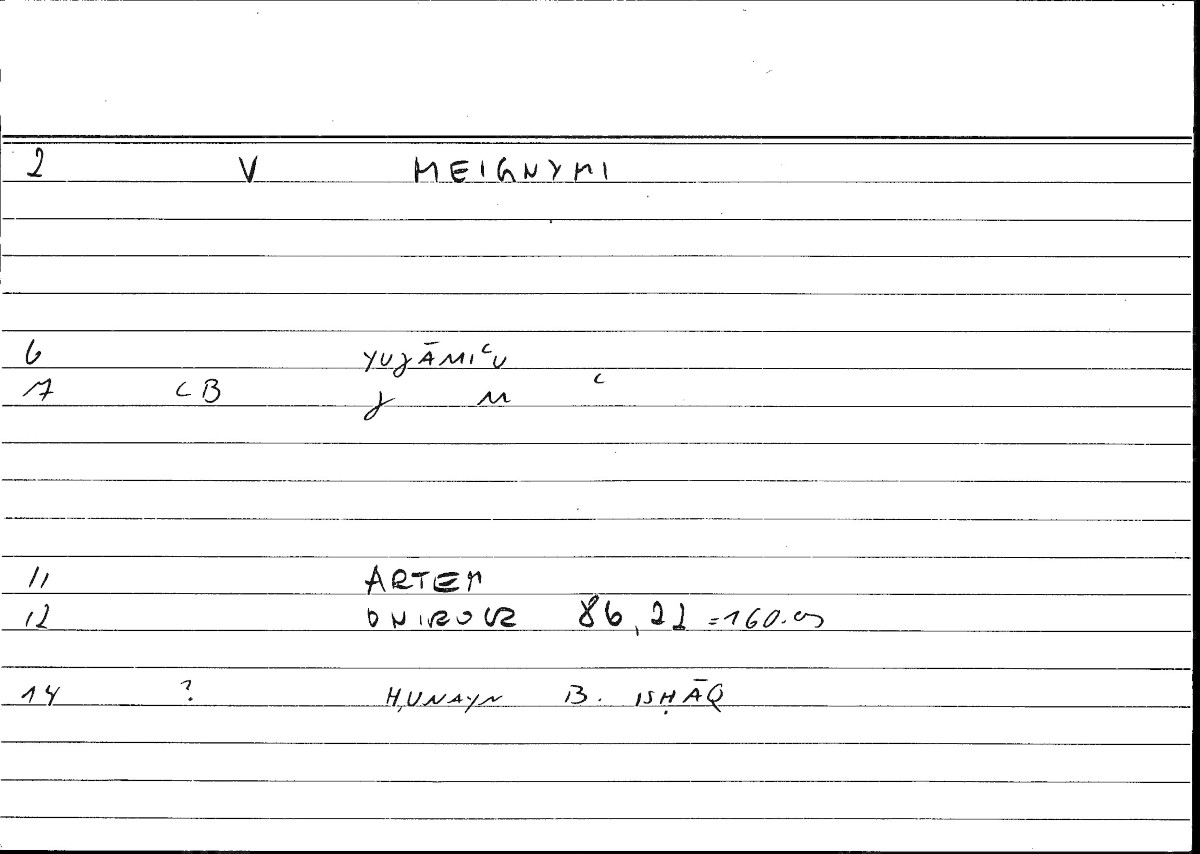 2 V MEIGNYMI
6 YUJĀMIʿU
7 CB J M ʿ
11 ARTEM
12 ONIROCR
14 ? ḤUNAYN B. ISḤĀQ